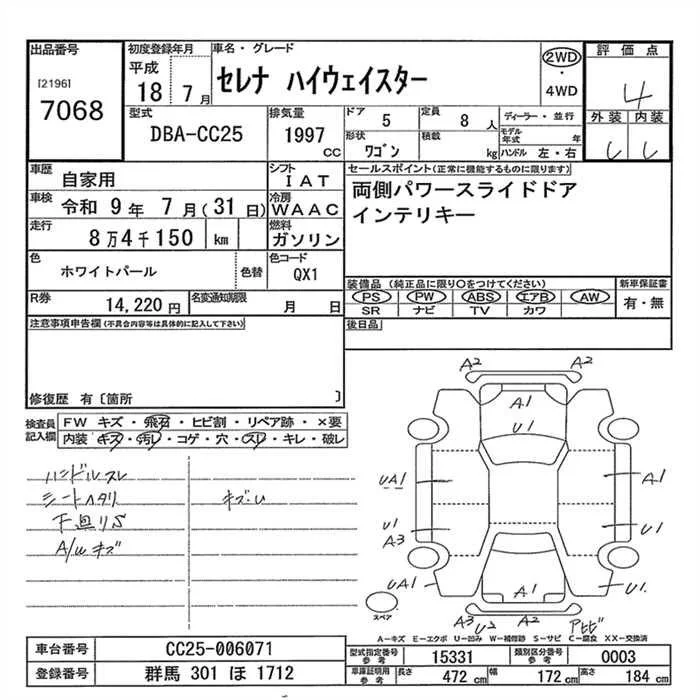 出品番号
[2196]
7068
初度登録年月
平成
18 7月
車名・グレード
セレナ ハイウェイスター
2WD
・
4WD
評価点
4
外装 内装
型式
DBA-CC25
排気量
1997
CC
ドア
5
定員
8 人
形状
ワゴン
積載
kg
ディーラー・並行
モデル年式 年
ハンドル 左・右
車歴
自家用
シフト
IAT
車検
令和 9年 7月(31日)
冷房
WAAC
走行
8万4千150 km
燃料
ガソリン
色
ホワイトパール
色替
色コード
QX1
R券
14,220円
名変通知期限
月 日
セールスポイント(正常に機能するものに限ります)
両側パワースライドドア
インテリキー
装備品(純正品に限り○をつけてください)
PS PW ABS エアB AW
SR ナビ TV カワ
新車保証書
有・無
後日品
注意事項申告欄(不具合内容等は具体的に記入して下さい)
修復歴 有〔箇所 〕
検査員記入欄
FW キズ・飛石・ヒビ割・リペア跡・×要
内装・キズ・汚レ・コゲ・穴・スレ・キレ・破レ
ハンドルスレ
シートヘタリ
下廻りS
A/Wキズ
キズ・U
A2 A2
A1
U1
UA1
A1
U1
A3
U1
UA1
A1
U1
A3 U2
アヒビ
スペア
A−キズ E−エクボ U−凹み W−補修跡 S−サビ C−腐食 XX−交換済
車台番号
CC25-006071
登録番号
群馬 301 ほ 1712
型式指定番号
参考
15331
類別区分番号
参考
0003
車庫証明用
参考
長さ 472 cm 幅 172 cm 高さ 184 cm